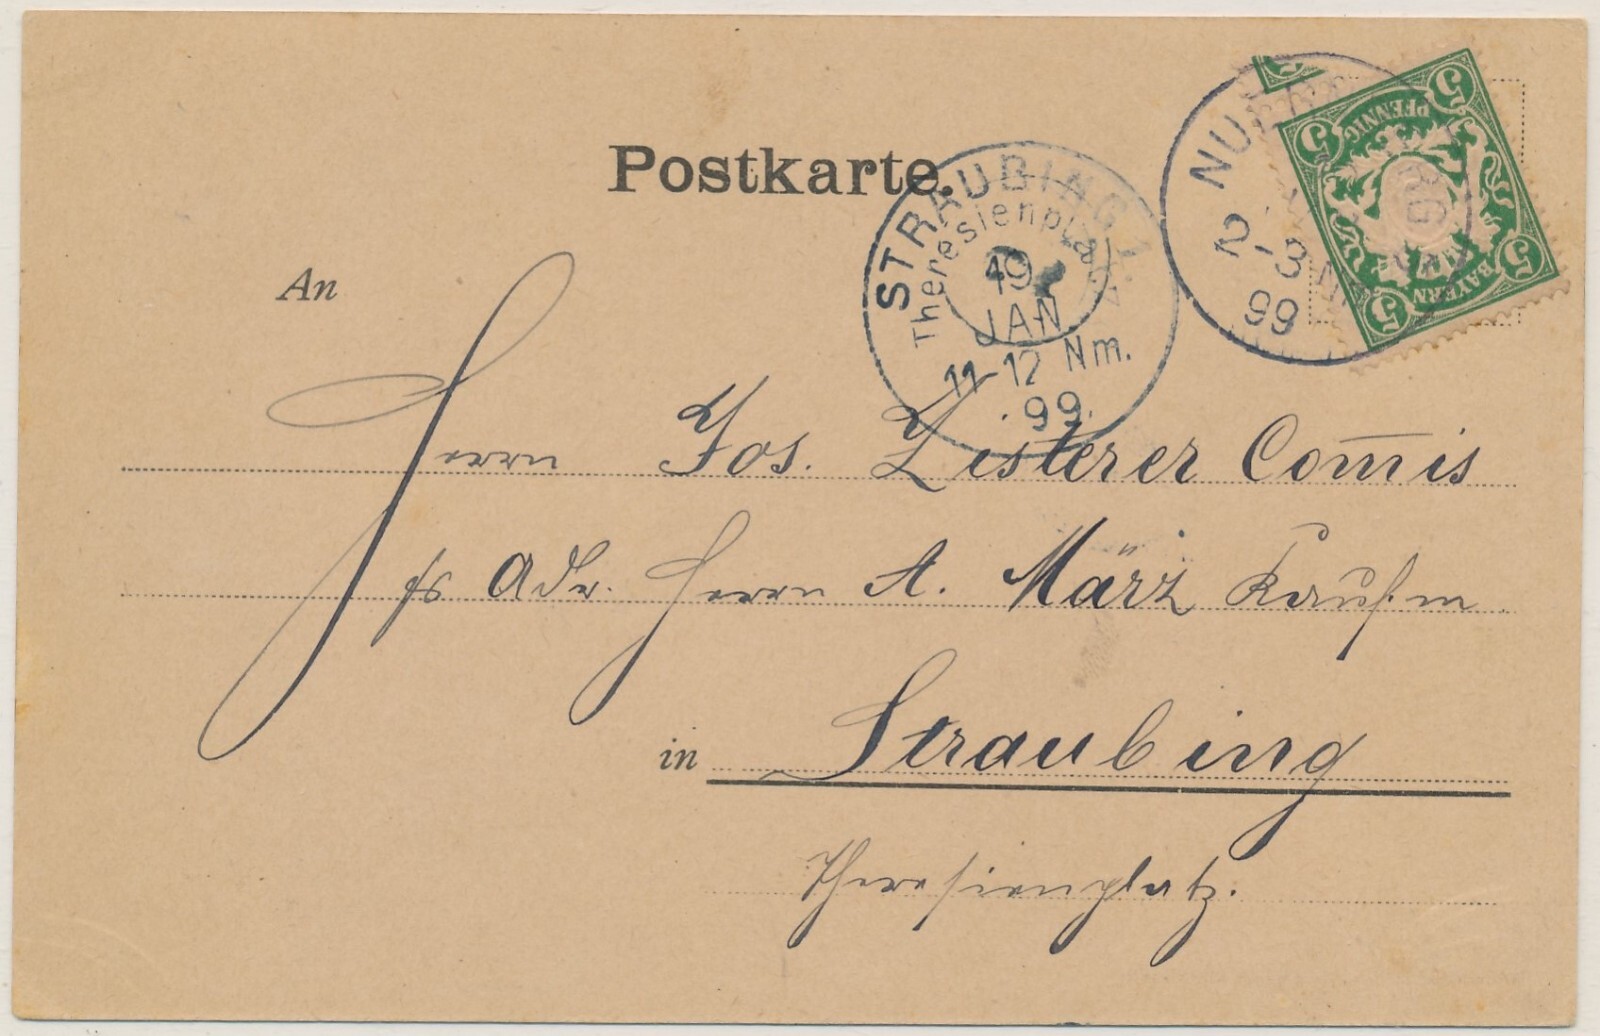 Postkarte.
STRAUBING 1.
Theresienplatz.
19
JAN
11-12 Nm.
.99.
NU RG
2-3 N
99
5 5 5 5
PFENNIG
BAYERN
An
Herrn Jos. Listerer Com̅is
Adr. Herrn A. März Kaufm
in Straubing
Theresienplatz.